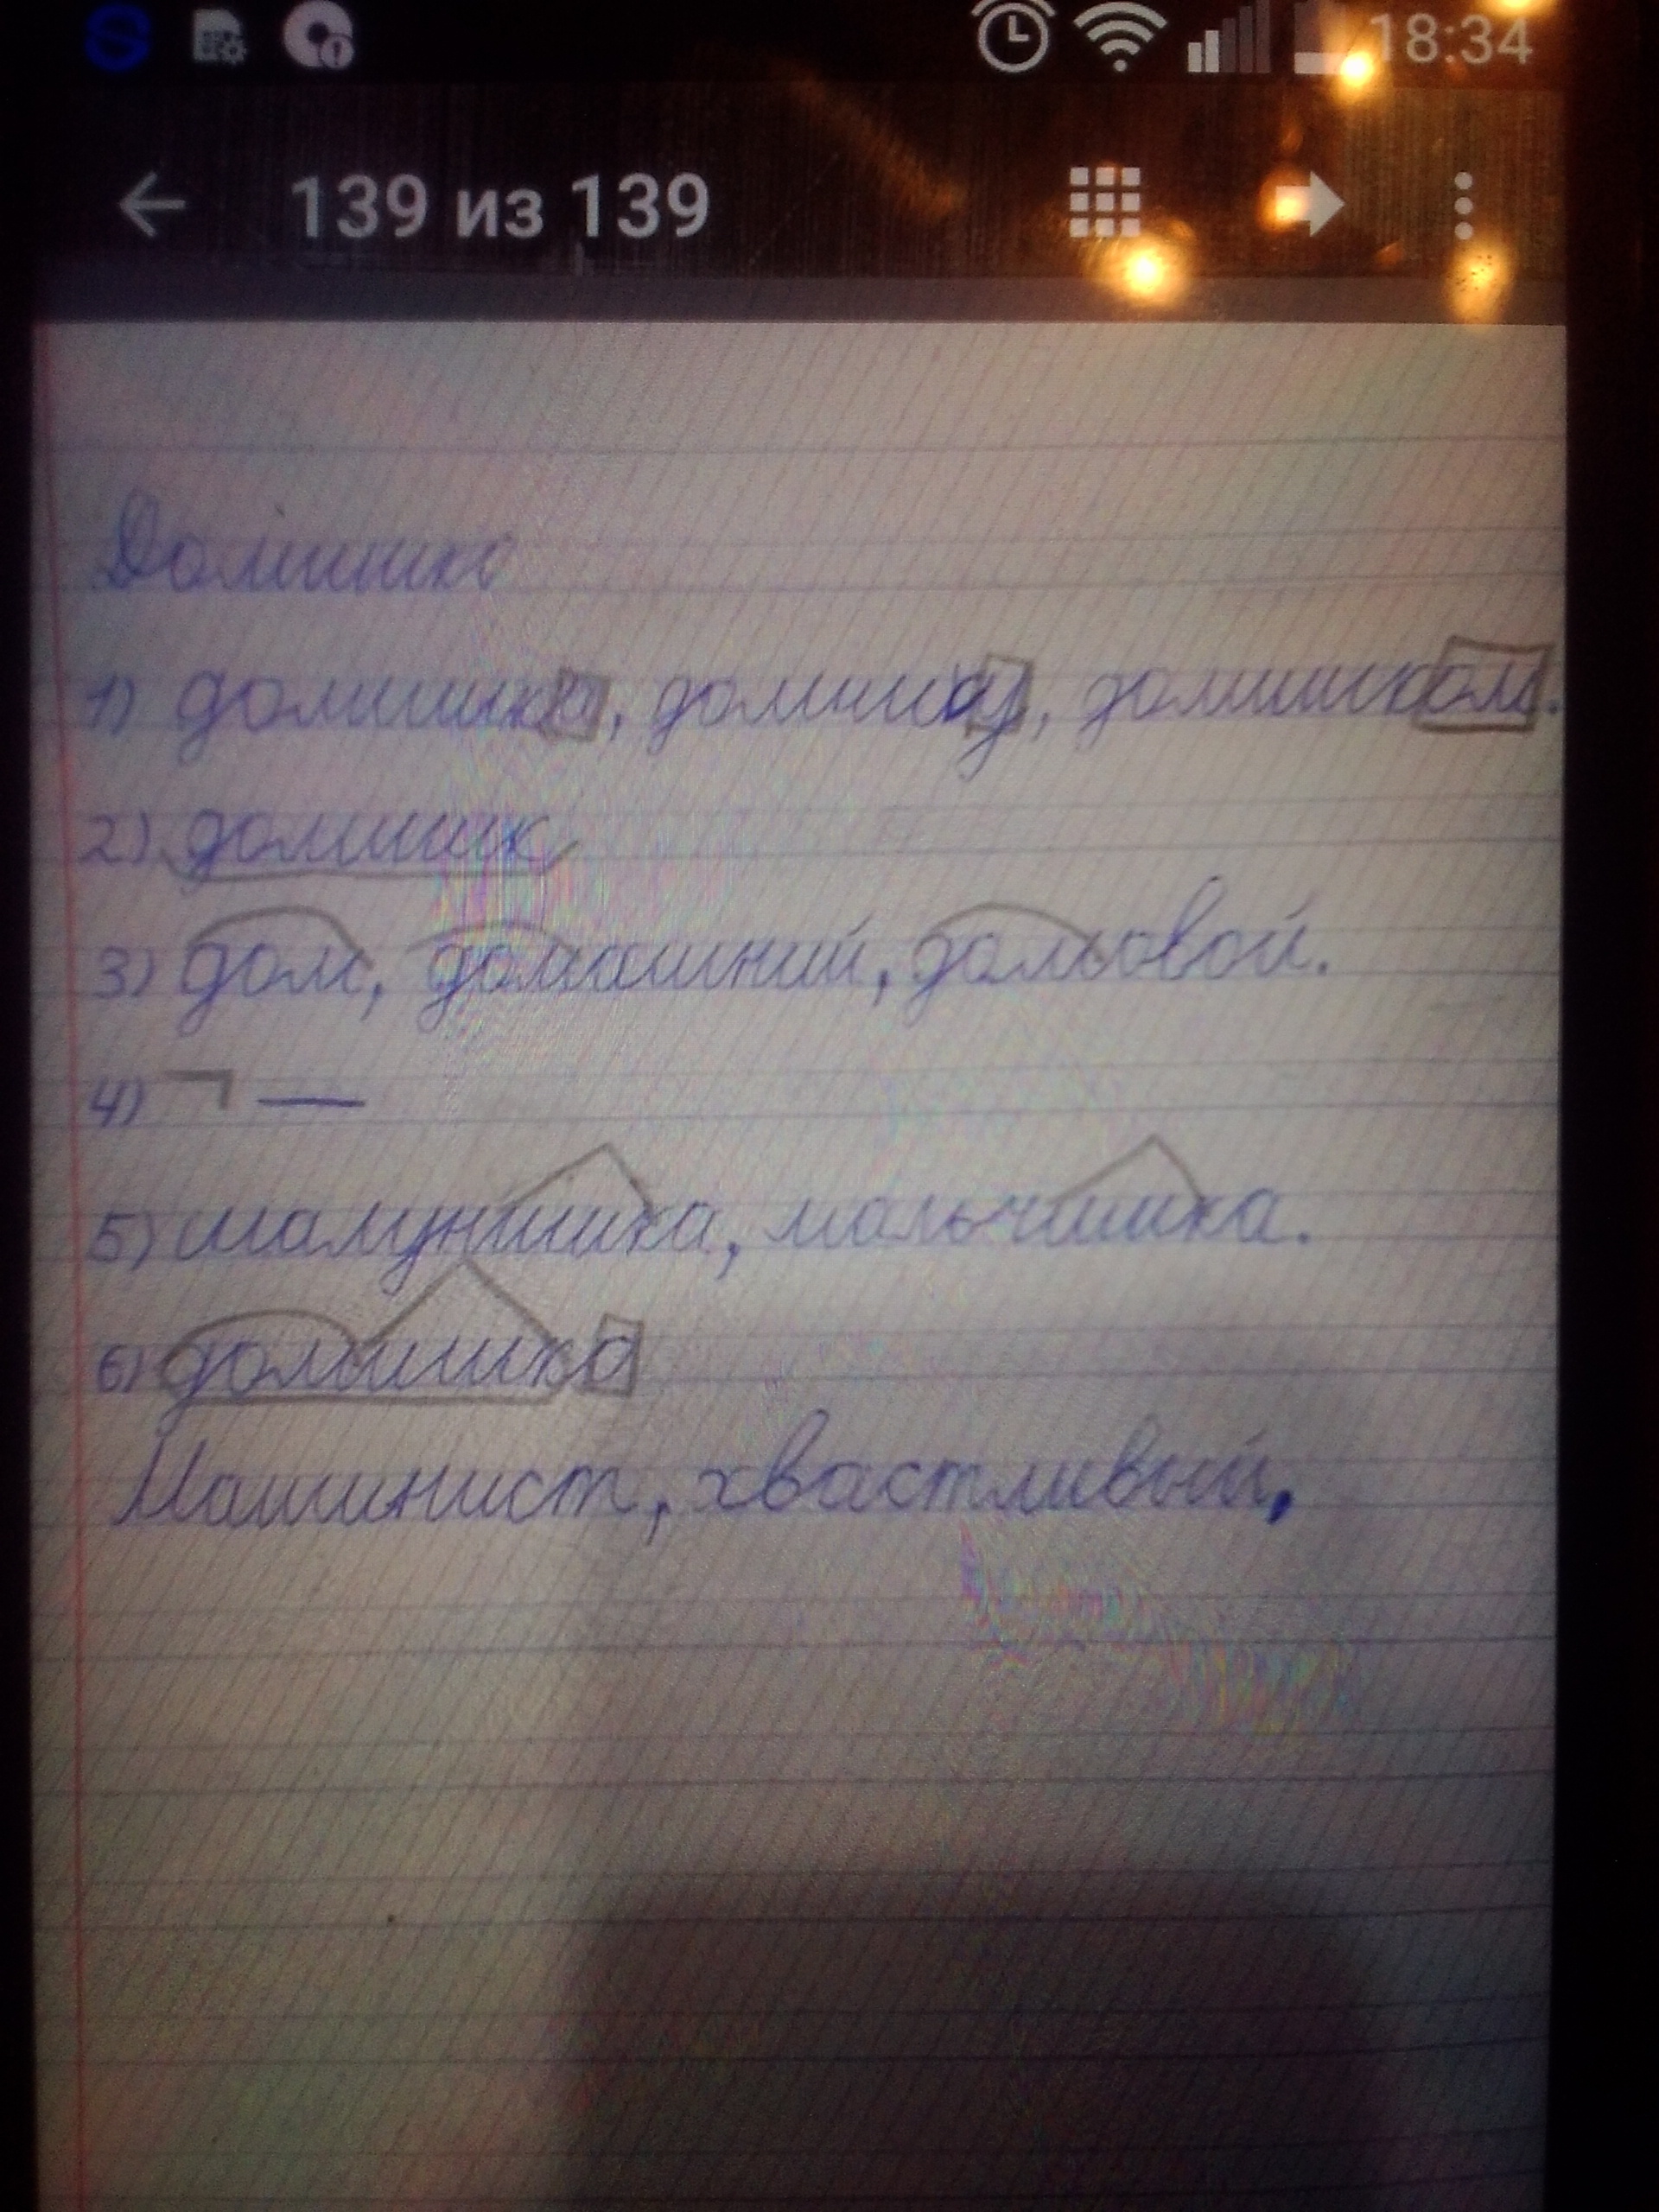 18:34
139 из 139
Домишко
1) домишка, домишку, домишком.
2) домишк
3) дом, домашний, домовой.
4) ¬ —
5) шалунишка, мальчишка.
6) домишко
Машинист, хвастливый,